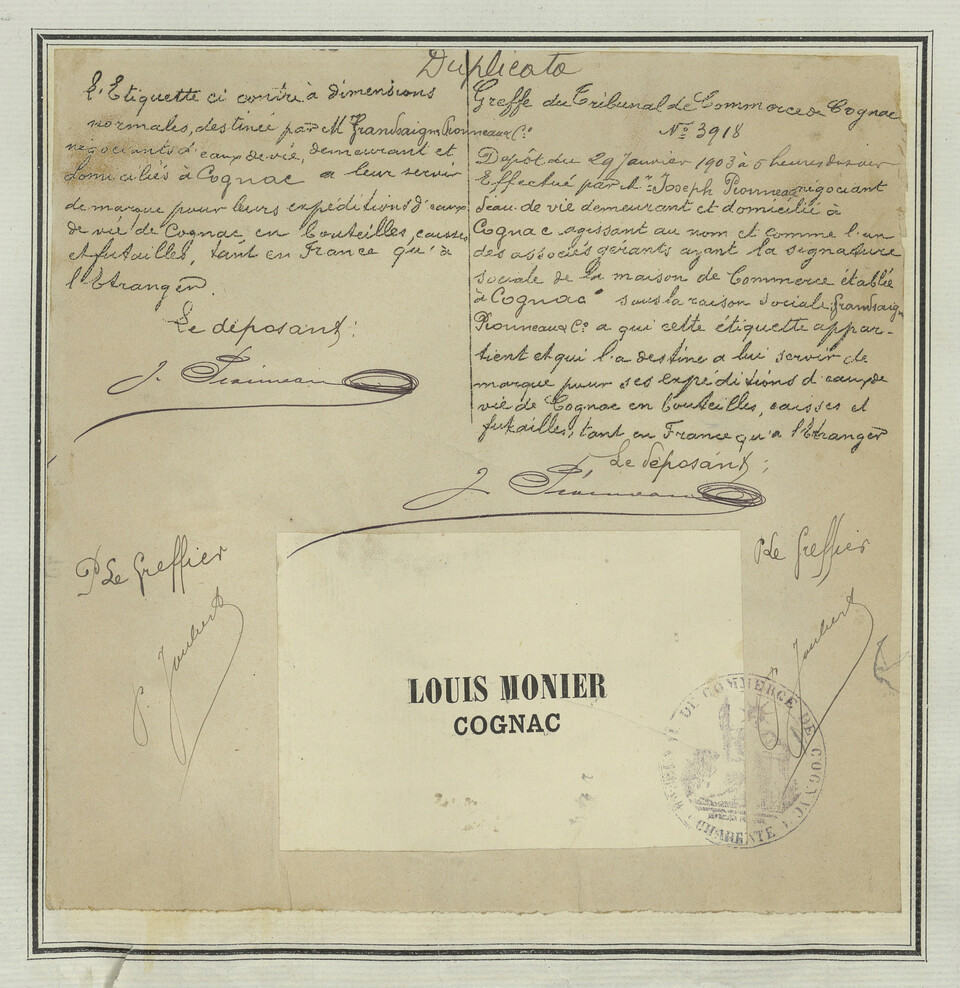 Duplicata
L'Etiquette ci contre à dimensions
normales, destinée par M Grandsaigne Pionneau & Cº
négociants d'eaux de vie, demeurant et
domiciliés à Cognac a leur servir
de marque pour leurs expéditions d'eaux
de vie de Cognac en bouteilles, caisses
et futailles, tant en France qu'à
l'Etranger.
Le déposant:
J. Pionneau
Pr Le Greffier
P. Joubert
Greffe du Tribunal de Commerce de Cognac
Nº 3918
Dépôt du 29 Janvier 1903 à 5 heures du soir
Effectué par Mr Joseph Pionneau négociant
d'eau de vie demeurant et domicilié à
Cognac agissant au nom et comme l'un
des associés gérants ayant la signature
sociale de la maison de Commerce établie
à Cognac sous la raison sociale Grandsaigne
Pionneau & Cº a qui cette étiquette appar-
tient et qui l'a destine a lui servir de
marque pour ses expéditions d'eaux de
vie de Cognac en bouteilles, caisses et
futailles, tant en France qu'a l'Etranger
Le déposant;
J. Pionneau
Pr Le Greffier
P. Joubert
LOUIS MONIER
COGNAC
DE COMMERCE DE COGNAC
CHARENTE